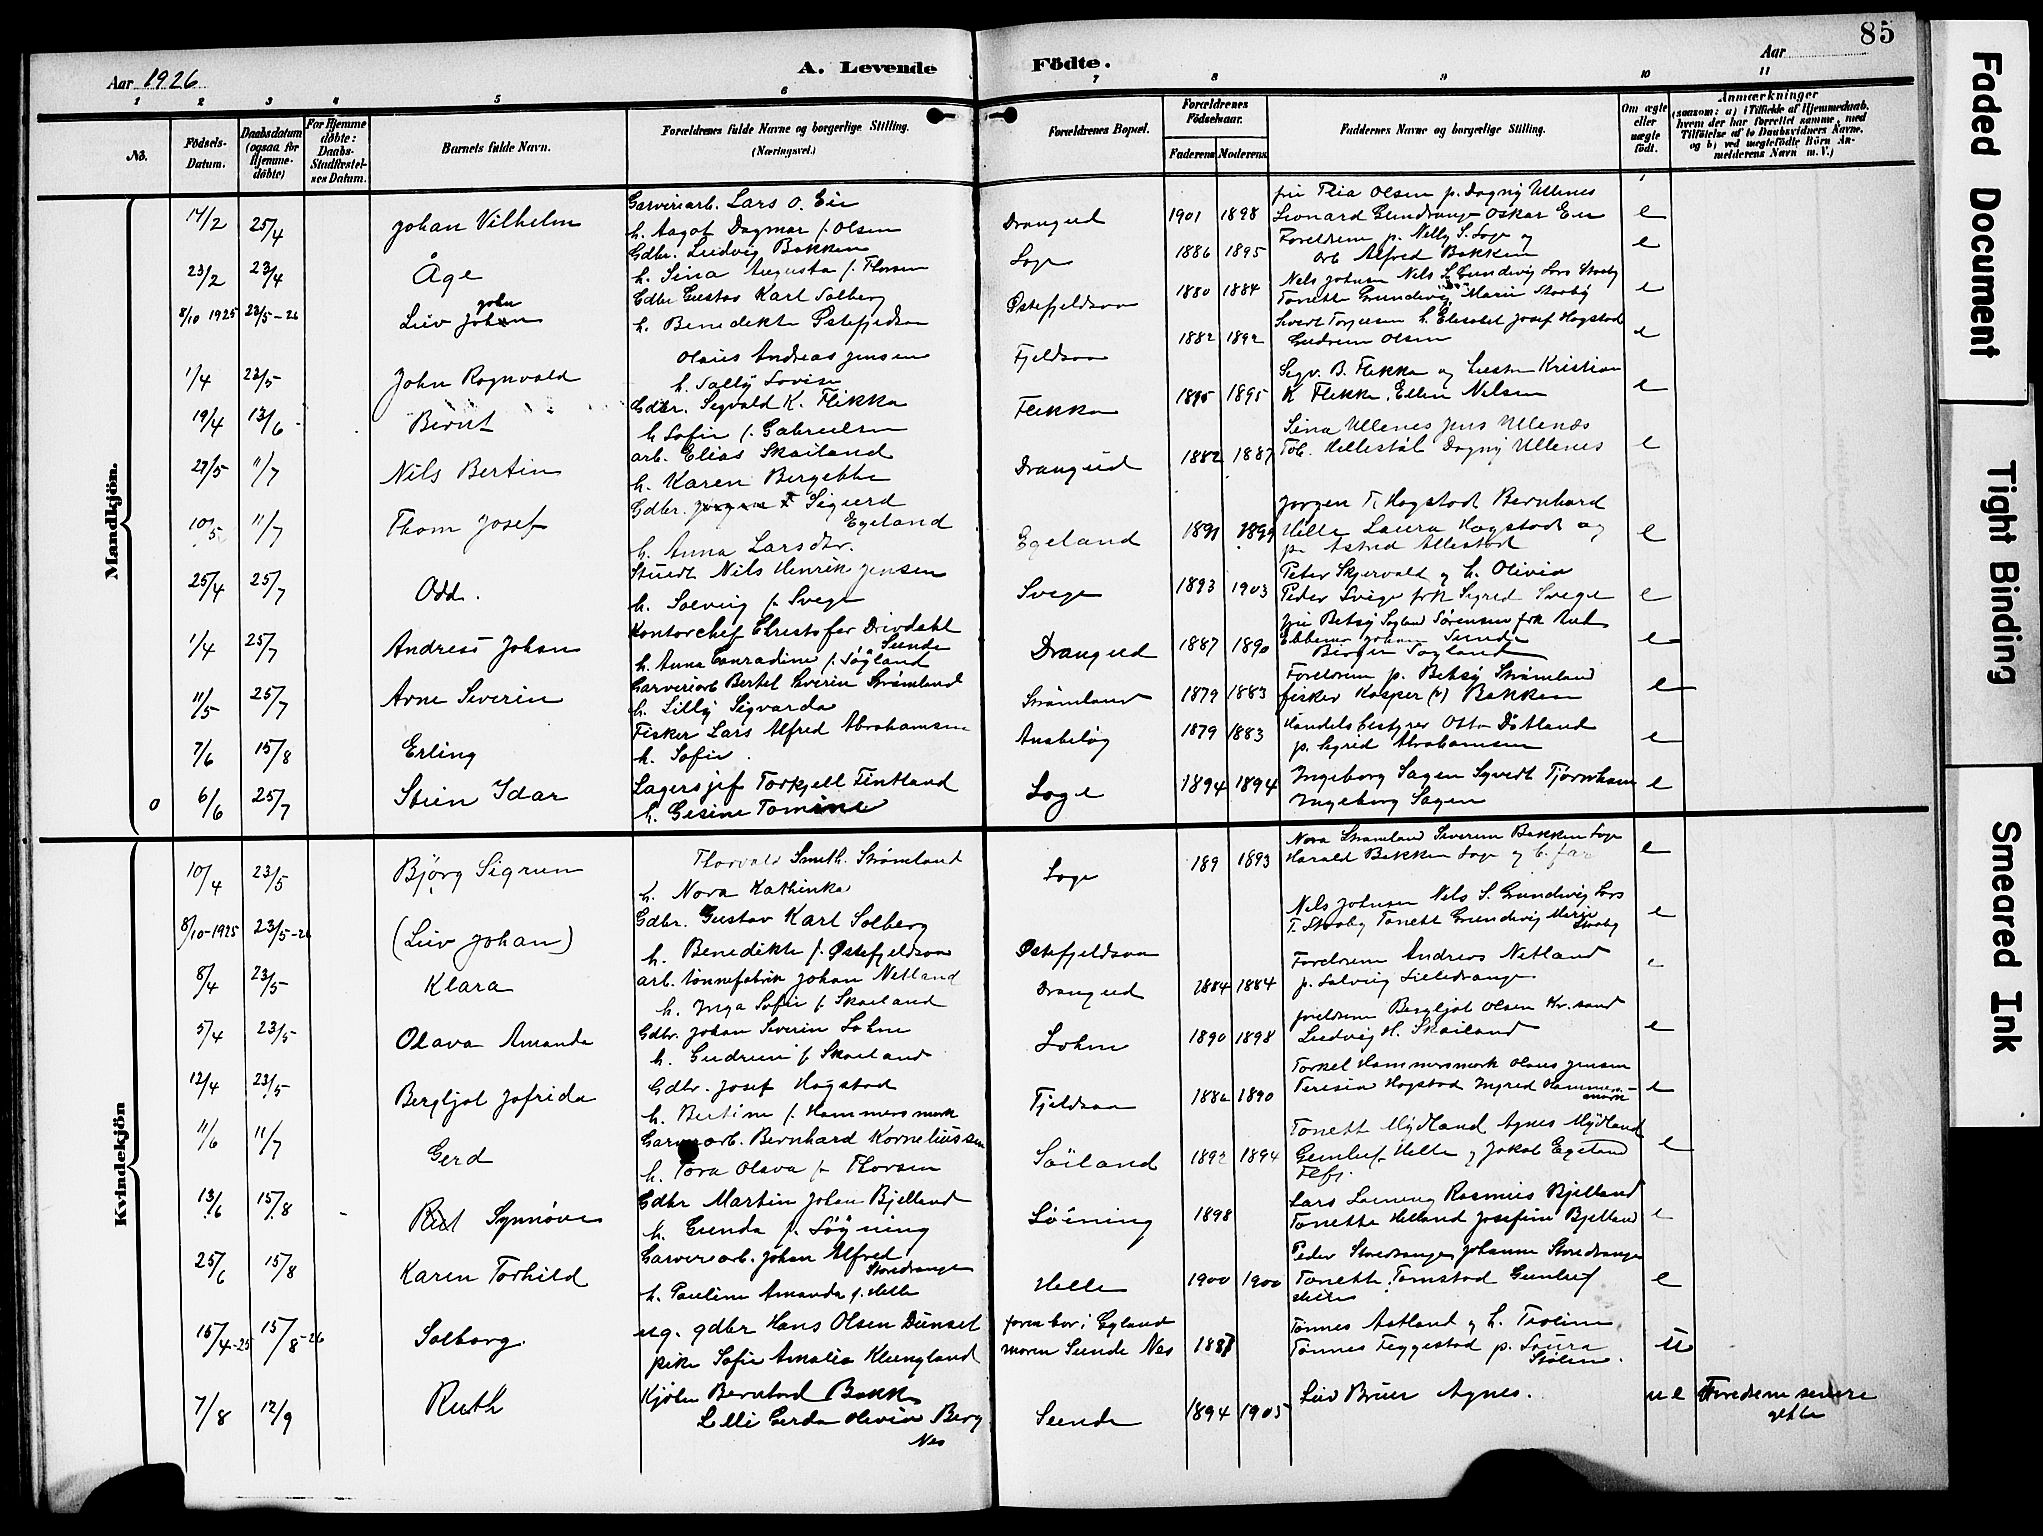 85
Aar 1926
A. Levende Födte.
Aar
1 2 3 4 5 6 7 8 9 10 11
No.
Födsels-Datum.
Daabsdatum (ogsaa for Hjemmedöbte)
For Hjemmedöbte: Daabs-Stadfæstelses Datum.
Barnets fulde Navn.
Forældrenes fulde Navne og borgerlige Stilling.
(Næringsvei.)
Forældrenes Bopæl.
Forældrenes Födselsaar.
Faderens Moderens
Faddernes Navne og borgerlige Stilling.
Om ægte eller uægte födt.
Anmærkninger
(saasom: a) i Tilfælde af Hjemmedaab, hvem der har forrettet samme, med Tilföielse af to Daabsvidners Navne, og b) ved uægtefödte Börn Anmelderens Navn m. V.)
Mandkjön.
14/2 25/4 Johan Vilhelm
Garveriarb. Lars O. Eie
h. Aagot Dagmar f. Olsen
Drangeid 1901 1898
fru Thia Olsen p. Dagny Ullenes
Leonard Oskar Eie e
23/2 23/4 Åge
Gdbr. Ludvig Bakken
h. Sina Augusta f. Thorsen
Loge 1886 1895
Foreldrene p. Nelly S. Loge og
arb Alfred Bakken e
8/10 1925 23/5-26 Liv Johan
Gdbr Gustav Karl Solberg
h. Benedikte Østefjeldsaa
Østefjeldsaa 1880 1884
Nels Johnsen Nels S. Grundvig Lars Staaby
Tonette Grundvig, Marie Staaby e
1/4 23/5 John Ragnvald
Olaus Andreas Jensen
h. Sally Lovise
Fjeldsaa 1882 1892
Sivert Torjusen h. Elisabet Josef Hogstad
Gudrun Olsen e
19/4 13/6 Bernt
Gdbr. Sigvald K. Flikka
h Sofie f. Gabrielsen
Flikka 1895 1895
Sigv. B. Flikka og Kristian
K Flikka, Ellen Nilsen e
27/5 11/7 Nils Bertin
arb. Elias Skailand
h. Karen Bergette
Drangeid 1882 1887
Sina Ullenes Jens Ullenes
Tob. Hellestöl Dagny Ullenes e
10/5 11/7 Thom Josef
Gdbr. Sigurd
Egeland
h. Anna Larsdtr.
Egeland 1891 1899
Jørgen T. Hogstad Bernhard
Helle Laura Hogstad og
p. Astrid Allestad e
25/4 25/7 Odd.
Stuert Nils Henrik Jensen
h. Solveig f. Svege
Svege 1893 1903
Peter Skjervold og h. Olivia
Peder Svege frk Sigred Svege e
1/4 25/7 Andreas Johan
Kontorchef Christofer Drivdahl
Sunde
h. Anna Conradine f. Søyland
Drangeid 1887 1890
fru Betsy Søyland Sørensen frk
Ebbesen Johan Sunde
Birger Søyland e
11/5 25/7 Arne Severin
Garveriarb Bertel Severin Strømland
h. Lilly Sigvarda
Strømland 1879 1883
Foreldrene p. Betsy Strømland
fisker Kasper Bakken e
7/6 15/8 Erling
Fisker Lars Alfred Abrahamsen
h. Sofie.
Anabeløy 1879 1883
Handelsbestyrer Otto Dåtland
p. Sigrid Abrahamsen e
0 6/6 25/7 Stein Idar
Lagersjef Torkjell Fintland
h. Gesine Tomine
Loge 1894 1894
Ingeborg Sagen Syvert Tjørnhom
Ingeborg Sagen e
Kvindekjön
10/4 23/5 Bjørg Sigrun
Thorvald Smith. Strømland
h. Nora Kathinka
Loge 189 1893
Nora Strømland Severin Bakken Loge
Harald Bakken Loge og b. far e
8/10-1925 23/5-26 (Liv Johan)
Gdbr. Gustav Karl Solberg
h. Benedikte f. Østefjeldsaa
Østefjeldsaa
Nels Johnsen Nels S. Grundvig Lars
T. Staaby Tonette Grundvig Marie
Staaby e
8/4 23/5 Klara
arb. tønnefabrik Johan Netland
h. Inga Sofie f. Skailand
Drangeid 1884 1884
Foreldrene Andreas Netland
p. Solveig Lilledrange e
5/4 23/5 Olava Amanda
Gdbr. Johan Severin Lohne
h. Gudrun f. Skailand
Lohne 1890 1898
foreldrene Bergljot Olsen Kr.sand
Ludvig H. Skailand e
12/4 23/5 Bergljot Jofrida
Gdbr. Josef Hogstad
h. Bertine f. Hammersmark
Fjeldsaa 1886 1890
Torkel Hammersmark Olaus Jensen
Teresia Hogstad Ingred Hammersmark e
11/6 11/7 Gerd
Garveriarb. Bernhard Korneliussen
h. Tora Olava f. Thorsen
Søiland 1892 1894
Tonette Mydland Agnes Mydland
Gunluf Helle og Jakob Egeland
Flfj. e
13/6 15/8 Rut Synnøve
Gdbr Martin Johan Bjelland
h. Gunda f. Løyning
Løining 1898
Lars Løining Rasmus Bjelland
Tonette Helland Josefine Bjelland e
25/6 15/8 Karen Torhild
Garveriarb. Johan Alfred
Storedrange
h. Pauline Amanda f. Helle
Helle 1900 1900
Peder Storedrange, Johanne Storedrange
Tonette Tomstad Gunluf
Helle e
15/4-25 15/8-26 Solborg.
ug. gdbr Hans Olsen Dunsæt
pike Sofie Amalia Klungland
faren bor i Gyland
moren Sunde Nes 1887
Tønnes Aatland og h. Trolina
Tønnes Feggestad p. Laura
Stølen. u
7/8 12/9 Ruth
Kjøbm Berntord Bakk
Lilli Gerda Olivia Berg
Nes
Sunde 1894 1905
Leiv Bruer Agnes. u e Foreldrene senere
gifte
Faded Document
Tight Binding
Smeared Ink